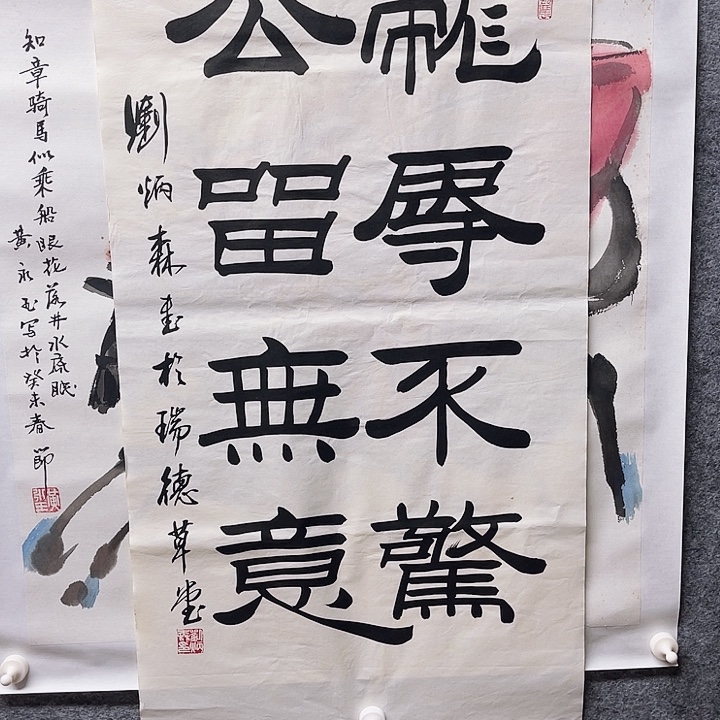 寵辱不驚
去留無意
劉炳森書於瑞德草堂
知章骑馬似乘船眼花落井水底眠
黄永玉写於癸未春節